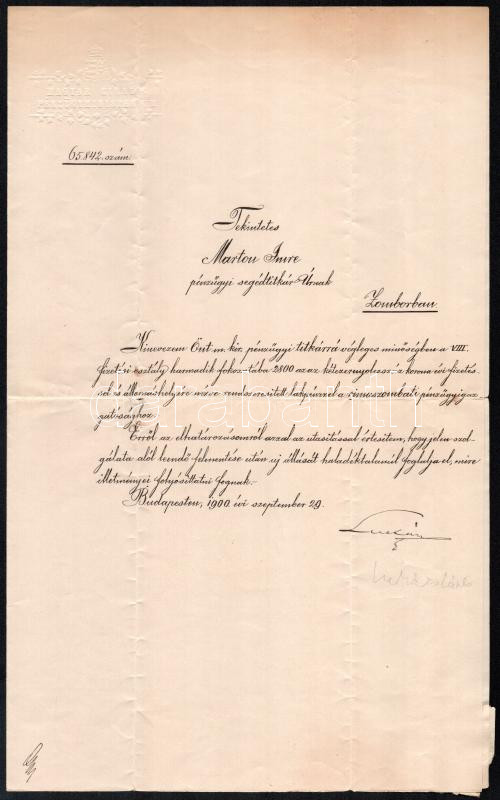 MAGYAR KIRÁLYI
65.842. szám.
Tekintetes
Marton Imre
pénzügyi segédtitkár Úrnak
Zomborban.
Kinevezem Önt m. kir. pénzügyi titkárrá végleges minőségben a VIII.
fizetési osztály harmadik fokozatába 2800 azaz kétezernyolcszáz korona évi fizetés
sel és állomáshelyére nézve rendszeresitett lakpénzzel a rimaszombati pénzügyigaz
gatósághoz.
Erről az elhatározásomról azzal az utasitással értesitem, hogy jelen szol
gálata alól leendő felmentése után új állását haladéktalanúl foglalja el, mire
illetményei folyósittatni fognak.-
Budapesten, 1900. évi szeptember 29.
Lukács
Lukács László
darabanth